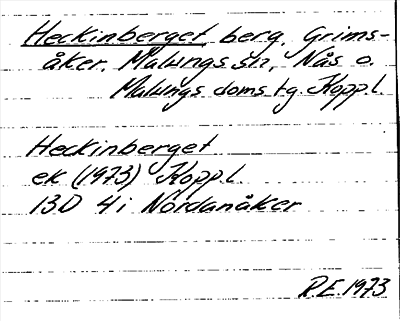 Heckinberget, berg, Grims-
åker, Malungs sn, Nås o.
Malungs doms.tg. Kopp.l.
Heckinberget
ek (1973) Kopp.l.
13D 4i Nordanåker
R.E. 1973